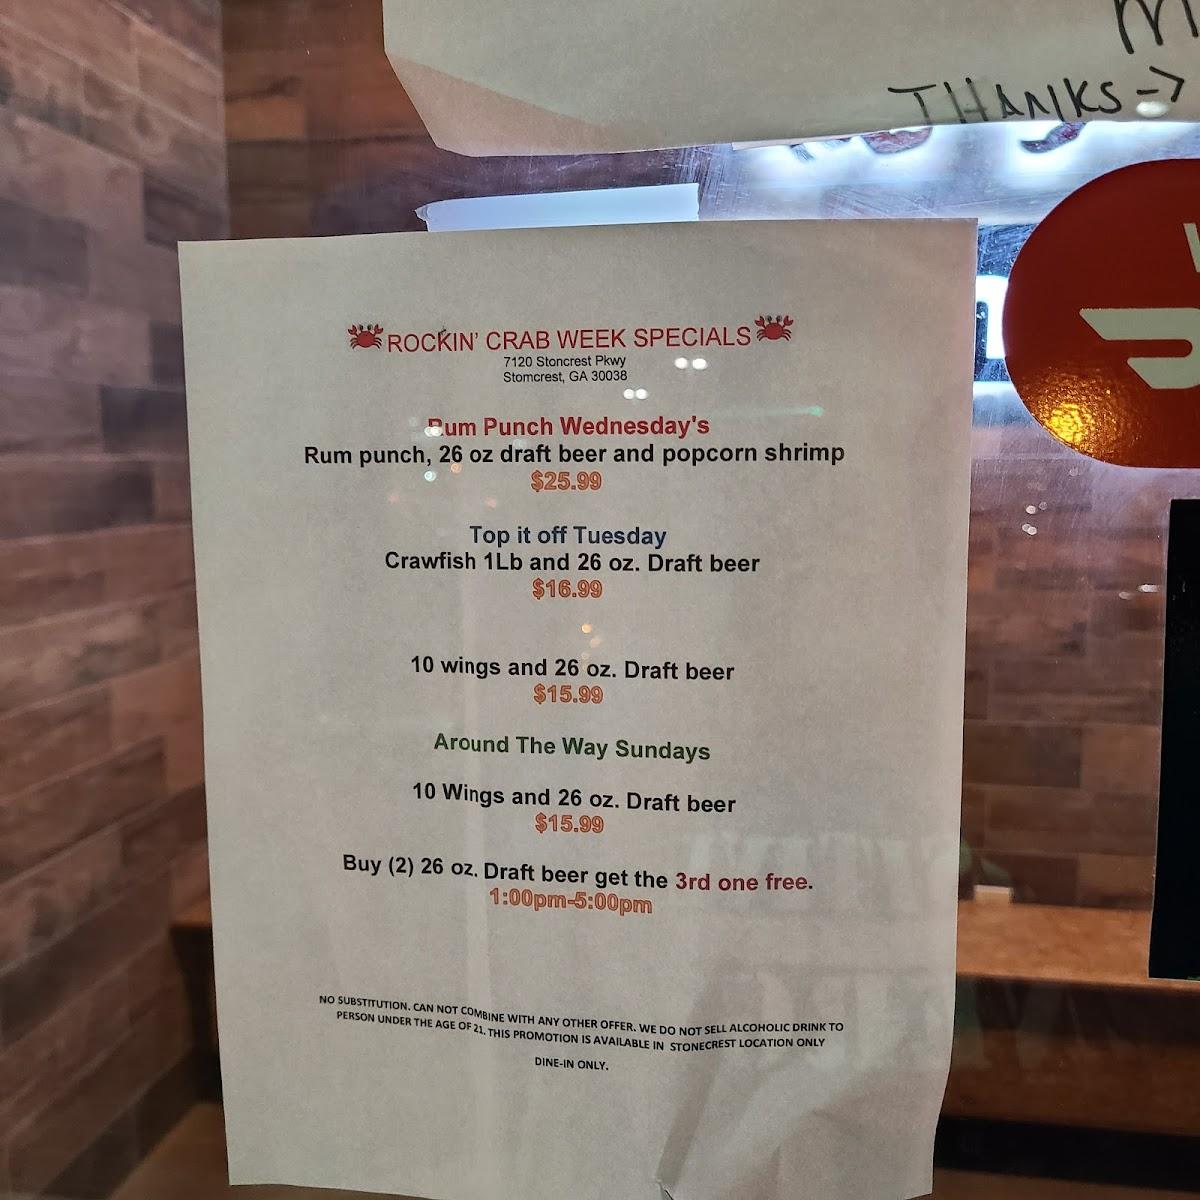 THANKS->
ROCKIN' CRAB WEEK SPECIALS
7120 Stoncrest Pkwy
Stomcrest, GA 30038
Rum Punch Wednesday's
Rum punch, 26 oz draft beer and popcorn shrimp
$25.99
Top it off Tuesday
Crawfish 1Lb and 26 oz. Draft beer
$16.99
10 wings and 26 oz. Draft beer
$15.99
Around The Way Sundays
10 Wings and 26 oz. Draft beer
$15.99
Buy (2) 26 oz. Draft beer get the 3rd one free.
1:00pm-5:00pm
NO SUBSTITUTION. CAN NOT COMBINE WITH ANY OTHER OFFER. WE DO NOT SELL ALCOHOLIC DRINK TO
PERSON UNDER THE AGE OF 21. THIS PROMOTION IS AVAILABLE IN STONECREST LOCATION ONLY
DINE-IN ONLY.